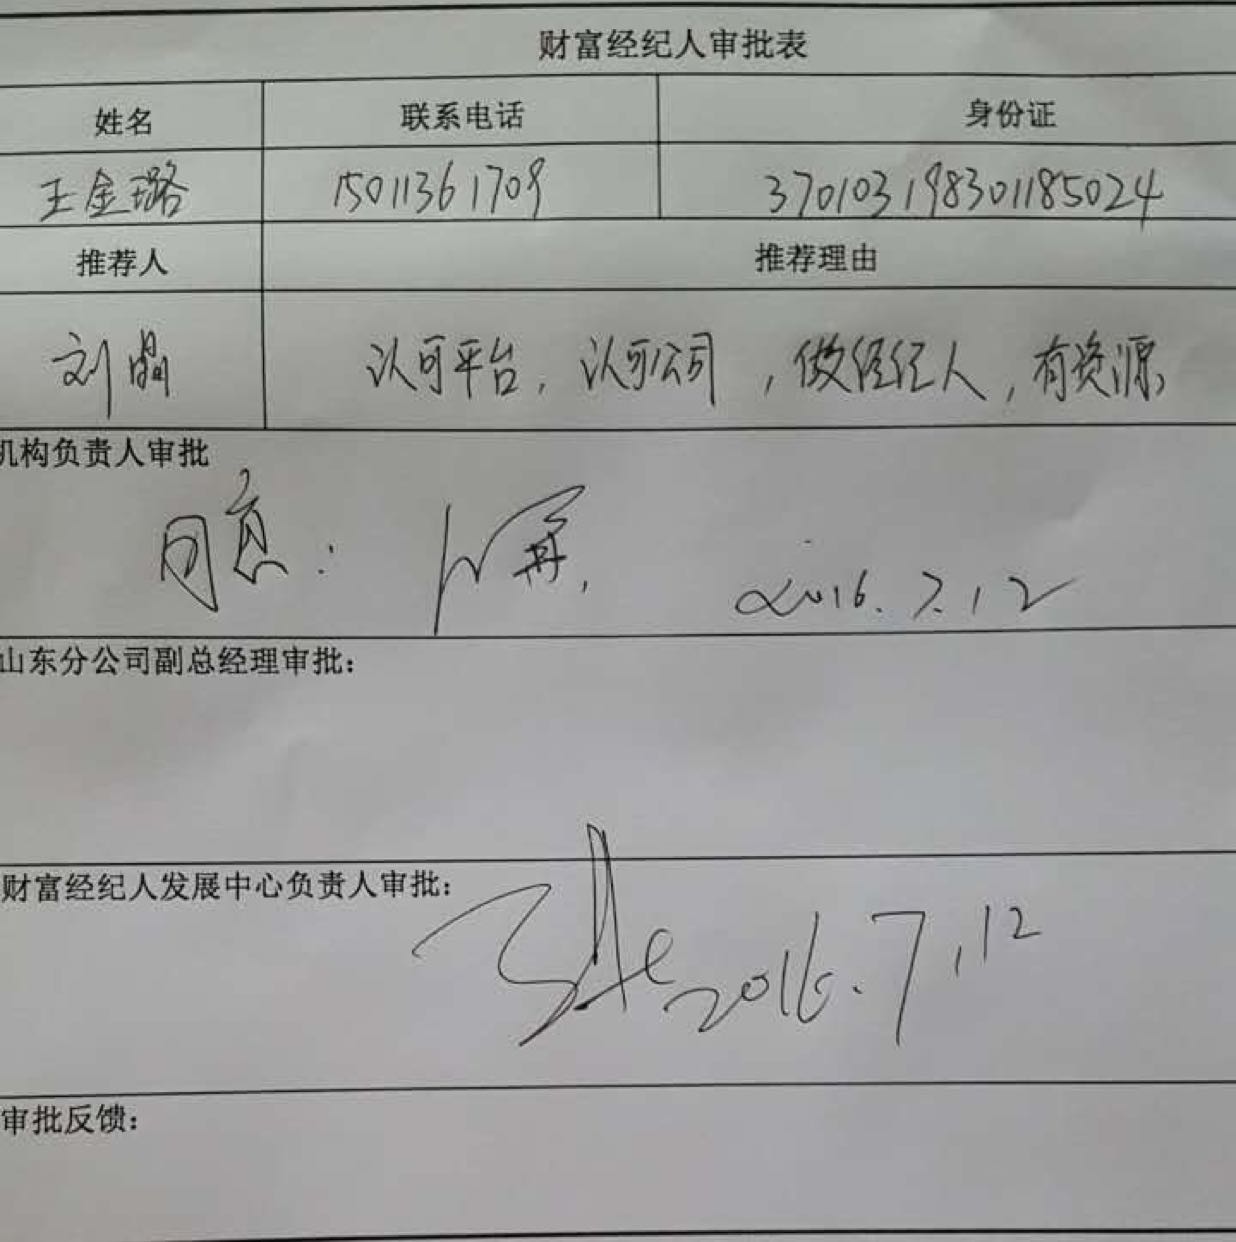 财富经纪人审批表
姓名 联系电话 身份证
王金璐 15011361709 370103198301185024
推荐人 推荐理由
刘晶 认可平台，认可公司，做经纪人，有资源
机构负责人审批
同意： 2016.7.12
山东分公司副总经理审批：
财富经纪人发展中心负责人审批：
2016.7.12
审批反馈：